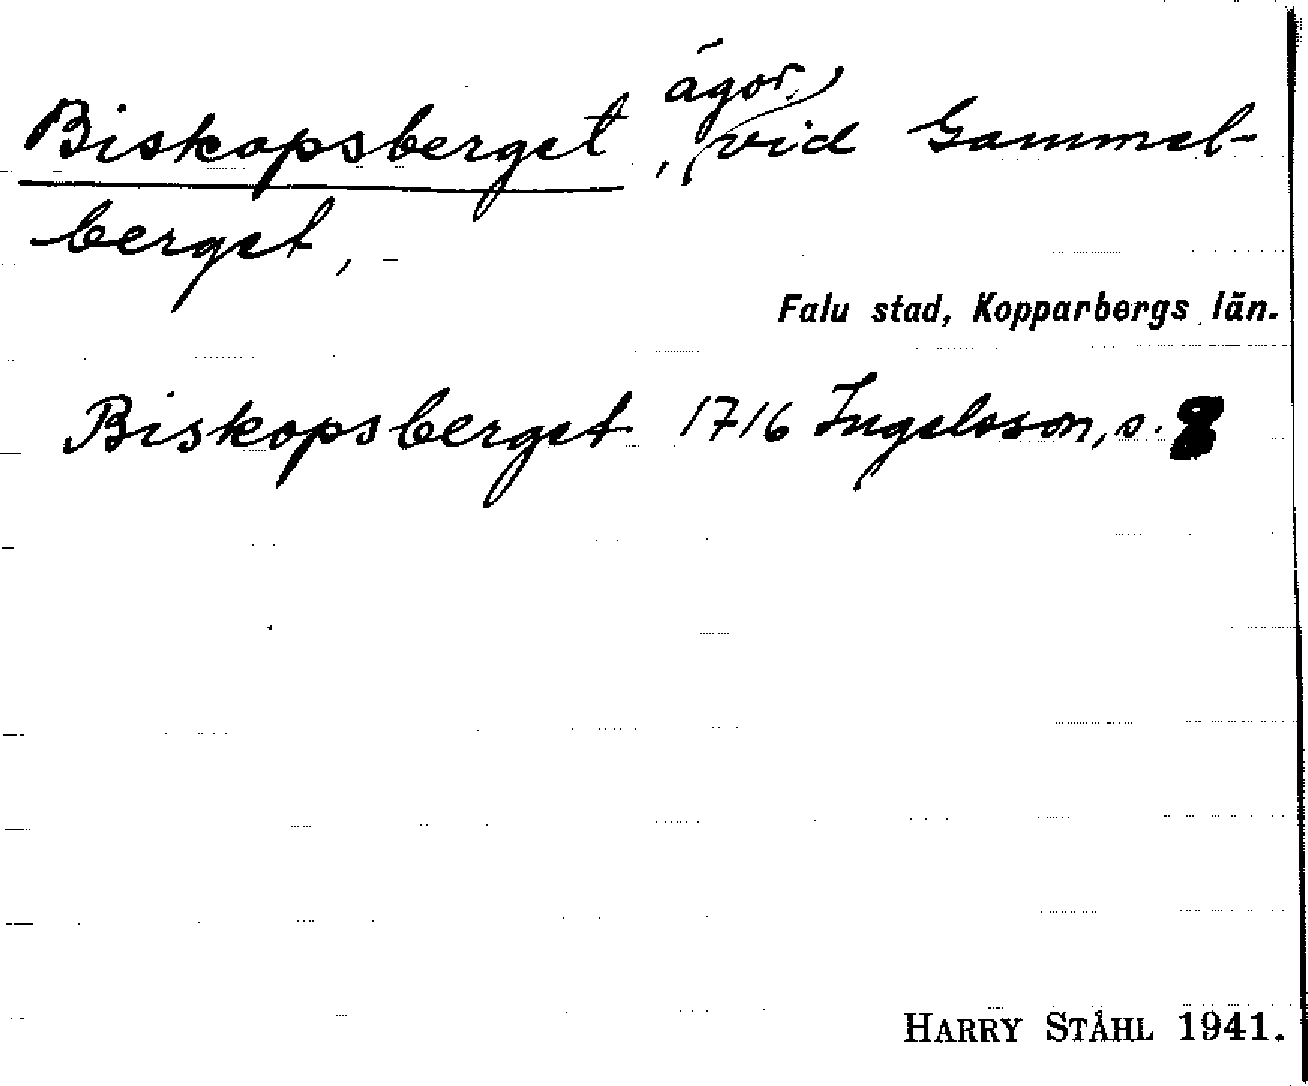 Biskopsberget, ägor vid Gammel-
berget, -
Falu stad, Kopparbergs län.
Biskopsberget 1716 Ingelsson, s. 8
HARRY STÅHL 1941.